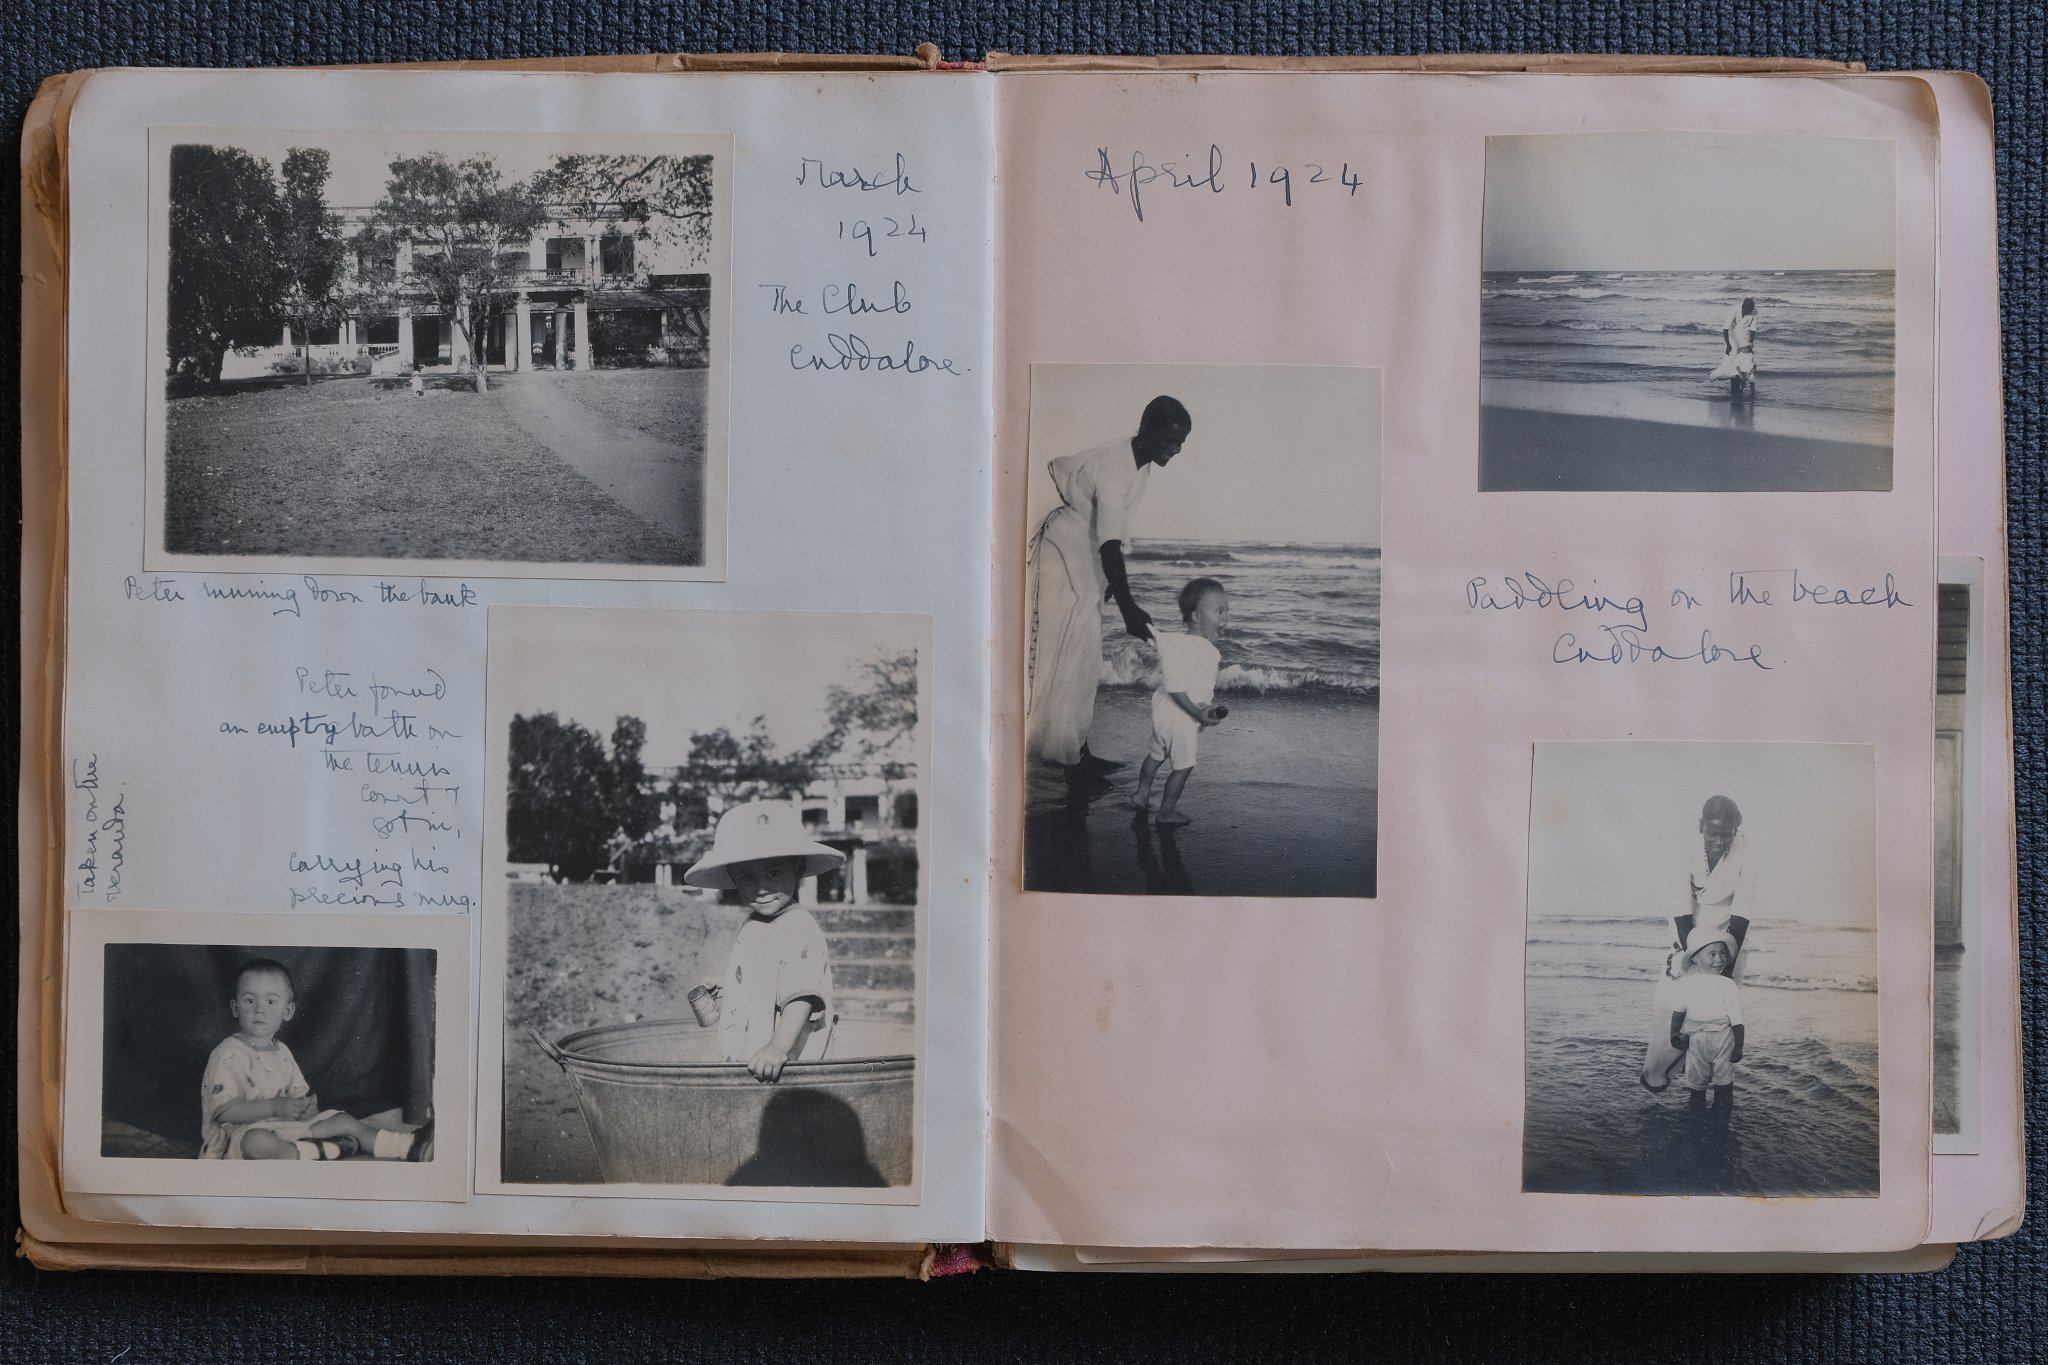 March
1924
The Club
Cuddalore.
Peter running down the bank
Peter found
an empty bath on
the tennis
court &
got in,
carrying his
precious mug.
Taken on the
veranda.
April 1924
Paddling on the beach
Cuddalore.